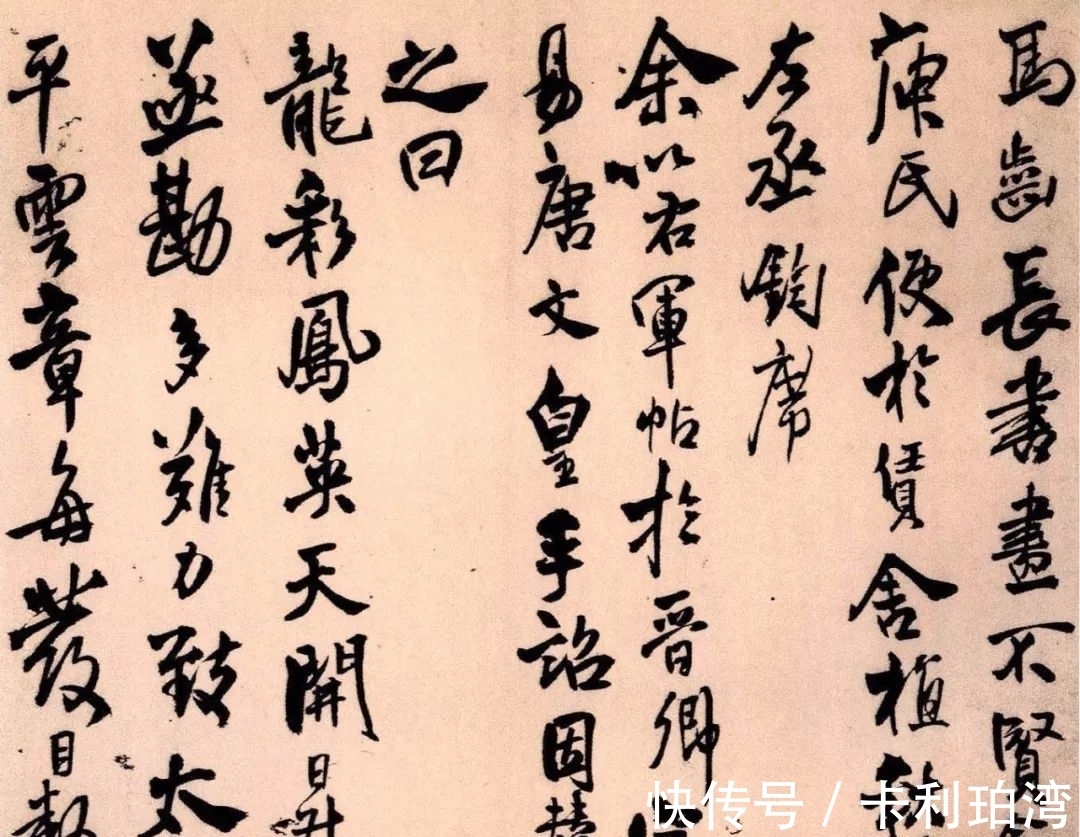 馬齒長書畫不賢
庾氏便於賃舍植
左丞鈞席
余以右軍帖於晉卿
易唐文皇手詔因
之曰
龍彩鳳英天開日升
遂勘多難力致太
平雲章每發目
快传号 / 卡利珀湾